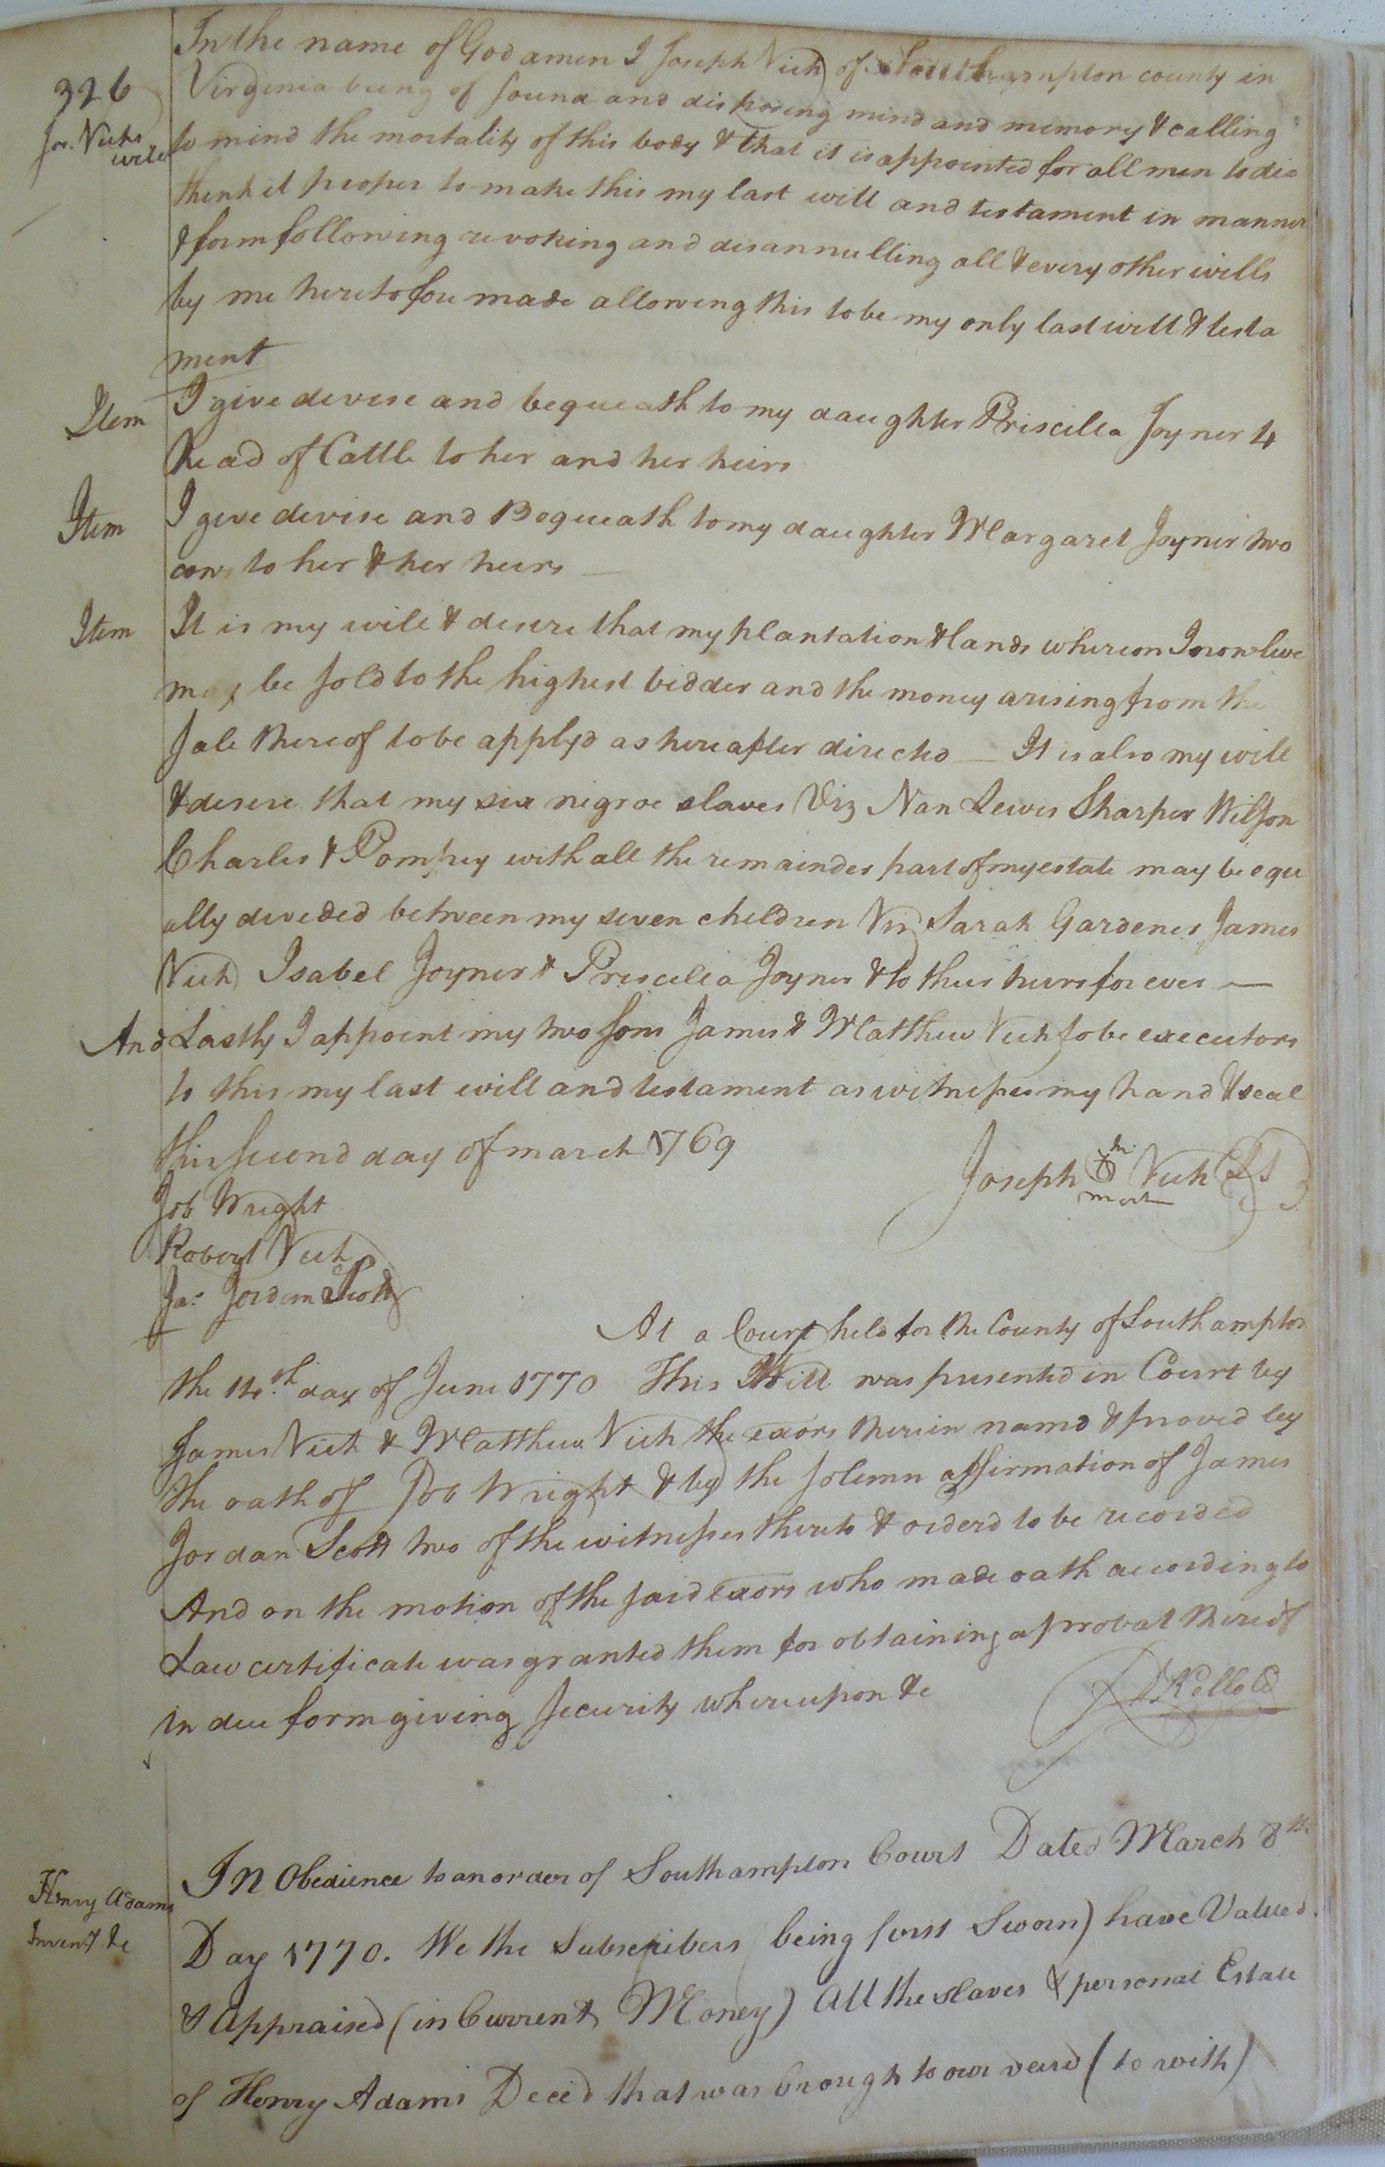 326
Jos. Vicks
will
In the name of God amen I Joseph Vick of Southampton county in
Virginia being of sound and disposing mind and memory & calling
to mind the mortality of this body & that it is appointed for all men to die
think it proper to make this my last will and testament in manner
& form following revoking and disannulling all & every other wills
by me heretofore made allowing this to be my only last will & testa
ment
Item I give devise and bequeath to my daughter Priscilla Joyner 4
head of Cattle to her and her heirs
Item I give devise and Bequeath to my daughter Margaret Joyner two
cows to her & her heirs
Item It is my will & desire that my plantation & lands whereon I now live
may be sold to the highest bidder and the money arising from the
sale thereof to be apply'd as hereafter directed — It is also my will
& desire that my six negroe slaves Viz Nan Lewis Sharper Wilson
Charles & Pompey with all the remainder part of my estate may be equ
ally divided between my seven children Viz Sarah Gardener James
Vick Isabel Joyner & Priscilla Joyner & to their heirs for ever —
And Lastly I appoint my two sons James & Matthew Vick to be executors
to this my last will and testament as witness my hand & seal
this second day of march 1769
Joseph his mark Vick LS
Job Wright
Robert Vick
Ja: Jordan Scott
At a Court held for the County of Southampton
the 14th day of June 1770 This Will was presented in Court by
James Vick & Matthew Vick the exors therein named & proved by
the oath of Job Wright & by the solemn affirmation of James
Jordan Scott two of the witnesses thereto & orderd to be recorded
And on the motion of the said exors who made oath according to
Law certificate was granted them for obtaining a probat thereof
in due form giving security whereupon &c
R Kello CC
Henry Adams
Invent &c
In Obedience to an order of Southampton Court Dated March 8th
Day 1770. We the Subscribers (being first Sworn) have Valued
& Appraised (in Current Money) All the slaves & personal Estate
of Henry Adams Deced that was brought to our veiw (to with)